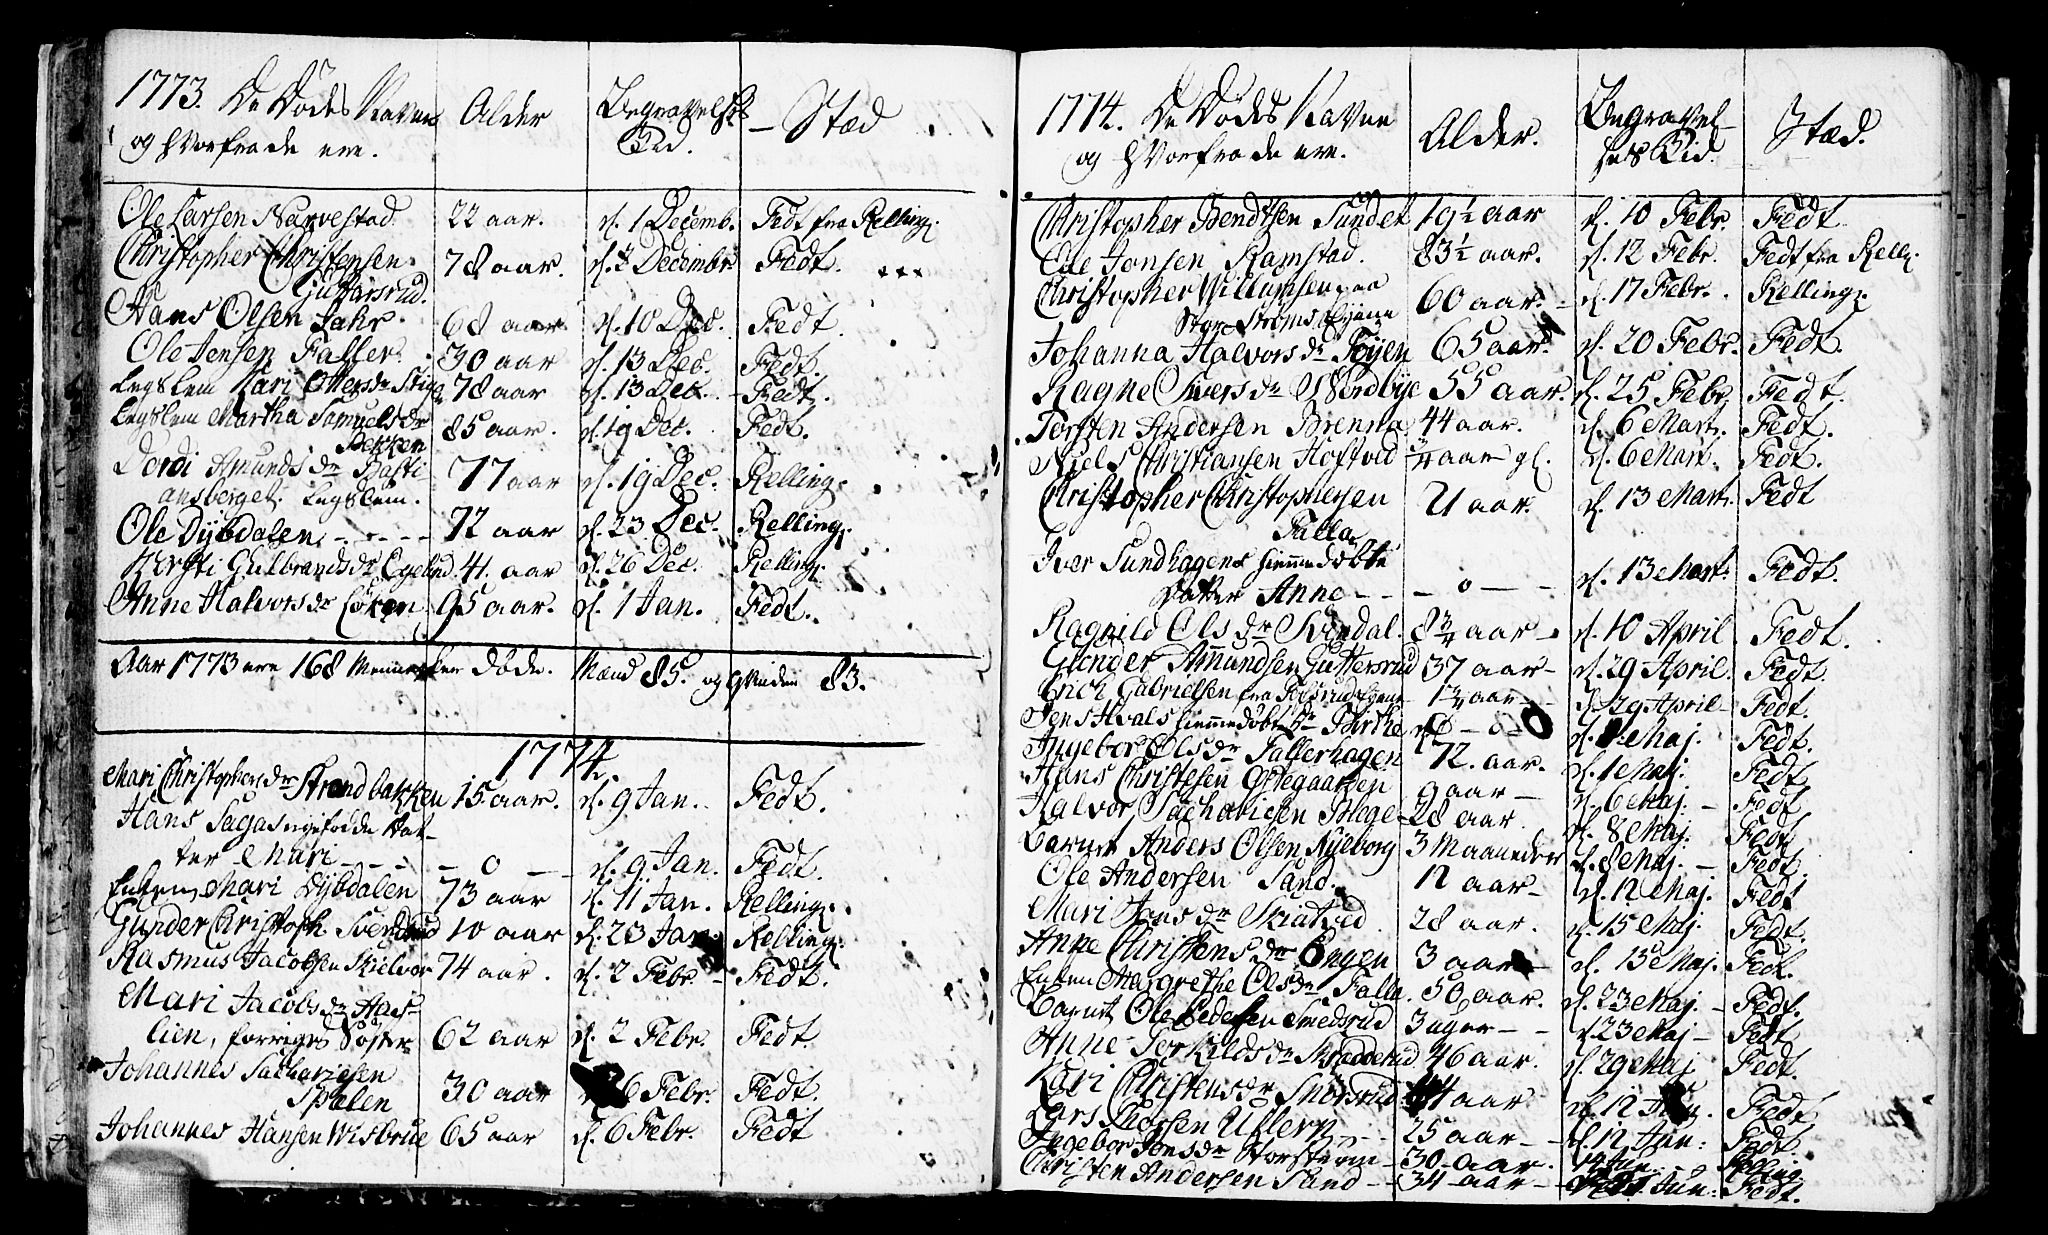 1773. De Dødes Navne Alder Begravelses Stæd
og hvorfra de ere. Tid.
Ole Larsen Narvestad 22 aar. d. 1 Decemb. Fedt fra Relling.
Christopher Christensen 78 aar. d. 2 Decembr Fedt.
Guttarsrud.
Hans Olsen Jahr. 68 aar. d. 10 Dec. Fedt.
Ole Jensen Faller. 30 aar d. 13 Dec. Fedt.
Legslem Kari Ottersdr 78 aar d. 13 Dec. Fedt.
Legslem Martha Samuelsdr 85 aar. d. 19 Dec. Fedt.
Bekken
Dordi Amundsdr Basti- 77 aar d. 19 Dec. Relling.
ansberget. Legslem.
Ole Dybdalen 72 aar d. 23 Dec. Relling.
Kersti Gulbrandsdr Egelund. 41. aar d. 26 Dec. Relling.
Anne Halvorsdr Løken 95 aar. d. 1 Jan. Fedt.
Aar 1773 ere 168 Mennesker døde. Mænd 85. og Qvinder 83.
1774.
Mari Christophersdr Strandbakken 15 aar. d. 9 Jan. Fedt.
Hans Sagas nyefødde Dat-
ter Mari - 0 - d. 9 Jan. Fedt.
Enken Mari Dybdalen 73 aar d. 11 Jan. Relling.
Gunder Christoph. Svendsrud 10 aar d. 23 Jan. Relling.
Rasmus Jacobsen Skielvor 74 aar. d. 2 Febr. Fedt.
Mari Jacobsdr Aas-
lien, forriges Søster 62 aar d. 2 Febr. Fedt.
Johannes Sachariesen 30 aar 6 Febr. Fedt.
Spalen
Johannes Hansen Wisbrue 65 aar d. 6 Febr. Fedt
1774. De Dødes Navne Alder. Begravel- Stæd.
og hvorfra de ere. ses Tid.
Christopher Bendtsen Sundet 19½ aar d. 10 Febr. Fedt
Ole Jonsen Ramstad. 83½ aar. d. 12 Febr. Fedt fra Rell.
Christopher Willumsen paa 60 aar. d. 17 Febr. Relling.
Stor Strøms Eyene
Johanna Halvorsdr Tøyen 65 aar. d. 20 Febr. Fedt.
Ragne Siversdr Nordbye 55 aar. d. 25 Febr Fedt.
Torsten Andersen Brenna 44 aar. d. 6 Mart. Fedt.
Niels Christiansen Hoftvid ¾ aar gl. d. 6 Mart. Fedt.
Christopher Christophersen 21 aar. d. 13 Mart. Fedt
Falla
Iver Sundhagens hiemmedøbte
Datter Anne - 0 - d. 13 Mart. Fedt.
Ragnild Olsdr Svindal. 8¾ aar d. 10 April Fedt.
Gunder Amundsen Guttersrud 37 aar d. 29 April. Fedt.
Erich Gabrielsen fra 1¾ aar d. 29 April Fedt.
Jens Hvals hiemmedøbt Dr Birthe - 0 - d. 1 Maj. Fedt.
Ingebor Olsdr Fallerhagen 72. aar. d. 1 Maj. Fedt.
Hans Christesen Oppegaarden 9 aar d. 6 Maj. Fedt
Halvor Sachariesen Hege 28 aar. d. 8 Maj. Fedt
barnet Anders Olsen Nyeborg 3 Maaneder d. 8 Maj. Fedt.
Ole Andersen Sand. 12 aar d. 12 Maj. Fedt
Mari Jensdr Skiatvid 28 aar. d. 15 Maj. Fedt.
Anne Christensdr Engen 3 aar d. 15 Maj. Fedt.
Enken Margrethe Olsdr Falla. 50 aar. d. 23 Maj. Fedt.
Barnet Ole Pedersen Smedsrud 3 uger d. 23 Maj Fedt
Anne Torkildsdr Mradderud 46 aar. d. 29 Maj Fedt.
Kari Christensdr Snorsrud 44 aar d. 12 Jun. Fedt
Lars Thorsen Ullery 25 aar d. 12 Jun: Fedt.
Ingebor Jensdr Storstrøm 30 aar. 12 Jun. Relling.
Christen Andersen Sand 34 aar Jun: Fedt.